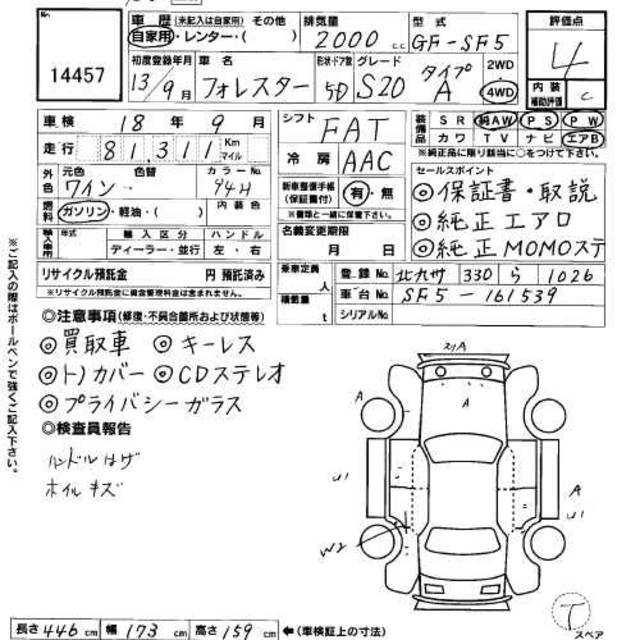 No.
14457
車歴 (未記入は自家用) その他 排気量 型式 評価点
自家用・レンター・( ) 2000 c.c. GF-SF5 4
初度登録年月 車名 形状・ドア グレード タイプ 2WD
13/9月 フォレスター 5D S20 A 4WD
内装補助評価 C
車検 18年 9月 シフト FAT 装備品 SR 純AW PS PW
カワ TV ナビ エアB
走行 81,311 Km マイル 冷房 AAC ※純正品に限り該当に○をつけて下さい。
外色 元色 色替 カラーNo. セールスポイント
ワイン 94H 新車整備手帳(保証書付) 有・無 ◎保証書・取説
燃料 ガソリン・軽油・( ) 内装色 ※書類と一緒に保管下さい。 ◎純正エアロ
輸入車用 年式 輸入区分 ハンドル 名義変更期限 ◎純正MOMOステ
ディーラー・並行 左・右 月 日
リサイクル預託金 円 預託済み 乗車定員 人 登録No. 北九州 330 ら 1026
※リサイクル預託金に資金管理料金は含まれません。 積載量 t 車台No. SF5-161539
シリアルNo.
◎注意事項(修復・不具合箇所および状態等)
◎買取車 ◎キーレス
◎トノカバー ◎CDステレオ
◎プライバシーガラス
◎検査員報告
ハンドルはげ
ホイルキズ
※ご記入の際はボールペンで強くご記入下さい。
A
A
A
U1
A
U1
W2
T
スペア
長さ 446 cm 幅 173 cm 高さ 159 cm ←(車検証上の寸法)